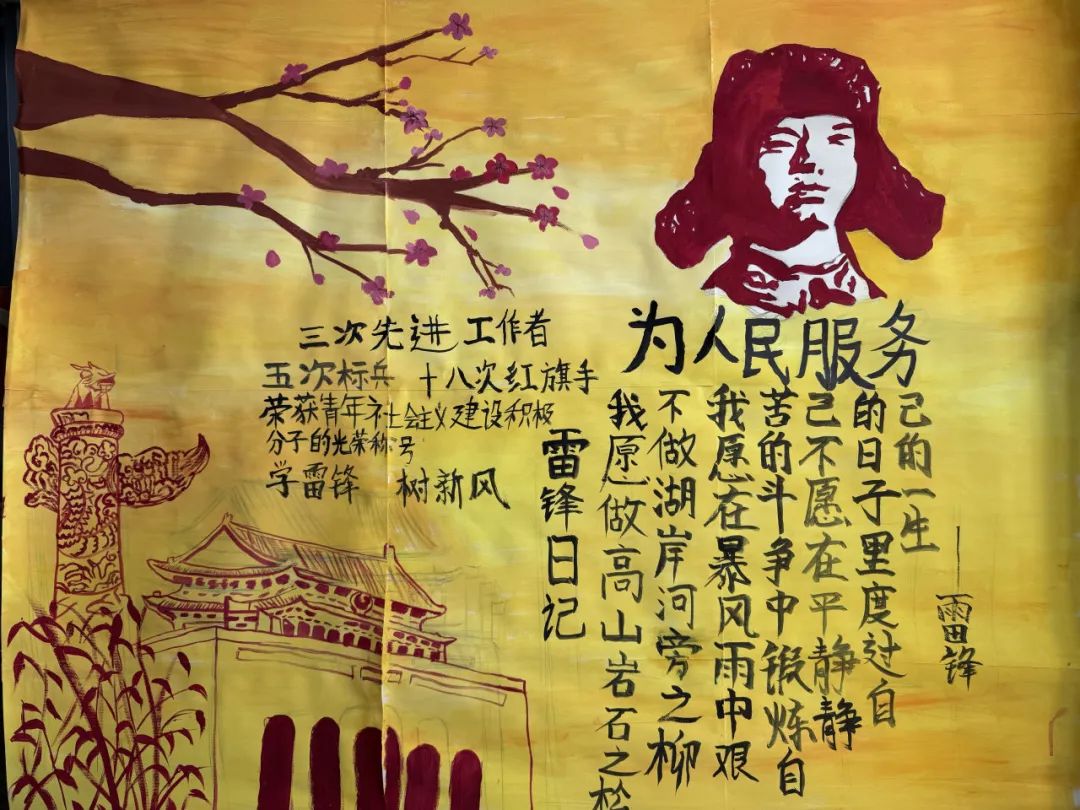 三次先进工作者
五次标兵 十八次红旗手
荣获青年社会主义建设积极
分子的光荣称号
学雷锋 树新风
为人民服务
雷锋日记
我愿做高山岩石之松
不做湖岸河旁之柳
我愿在暴风雨中艰
苦的斗争中锻炼自
己不愿在平静静
的日子里度过自
己的一生
——雷锋